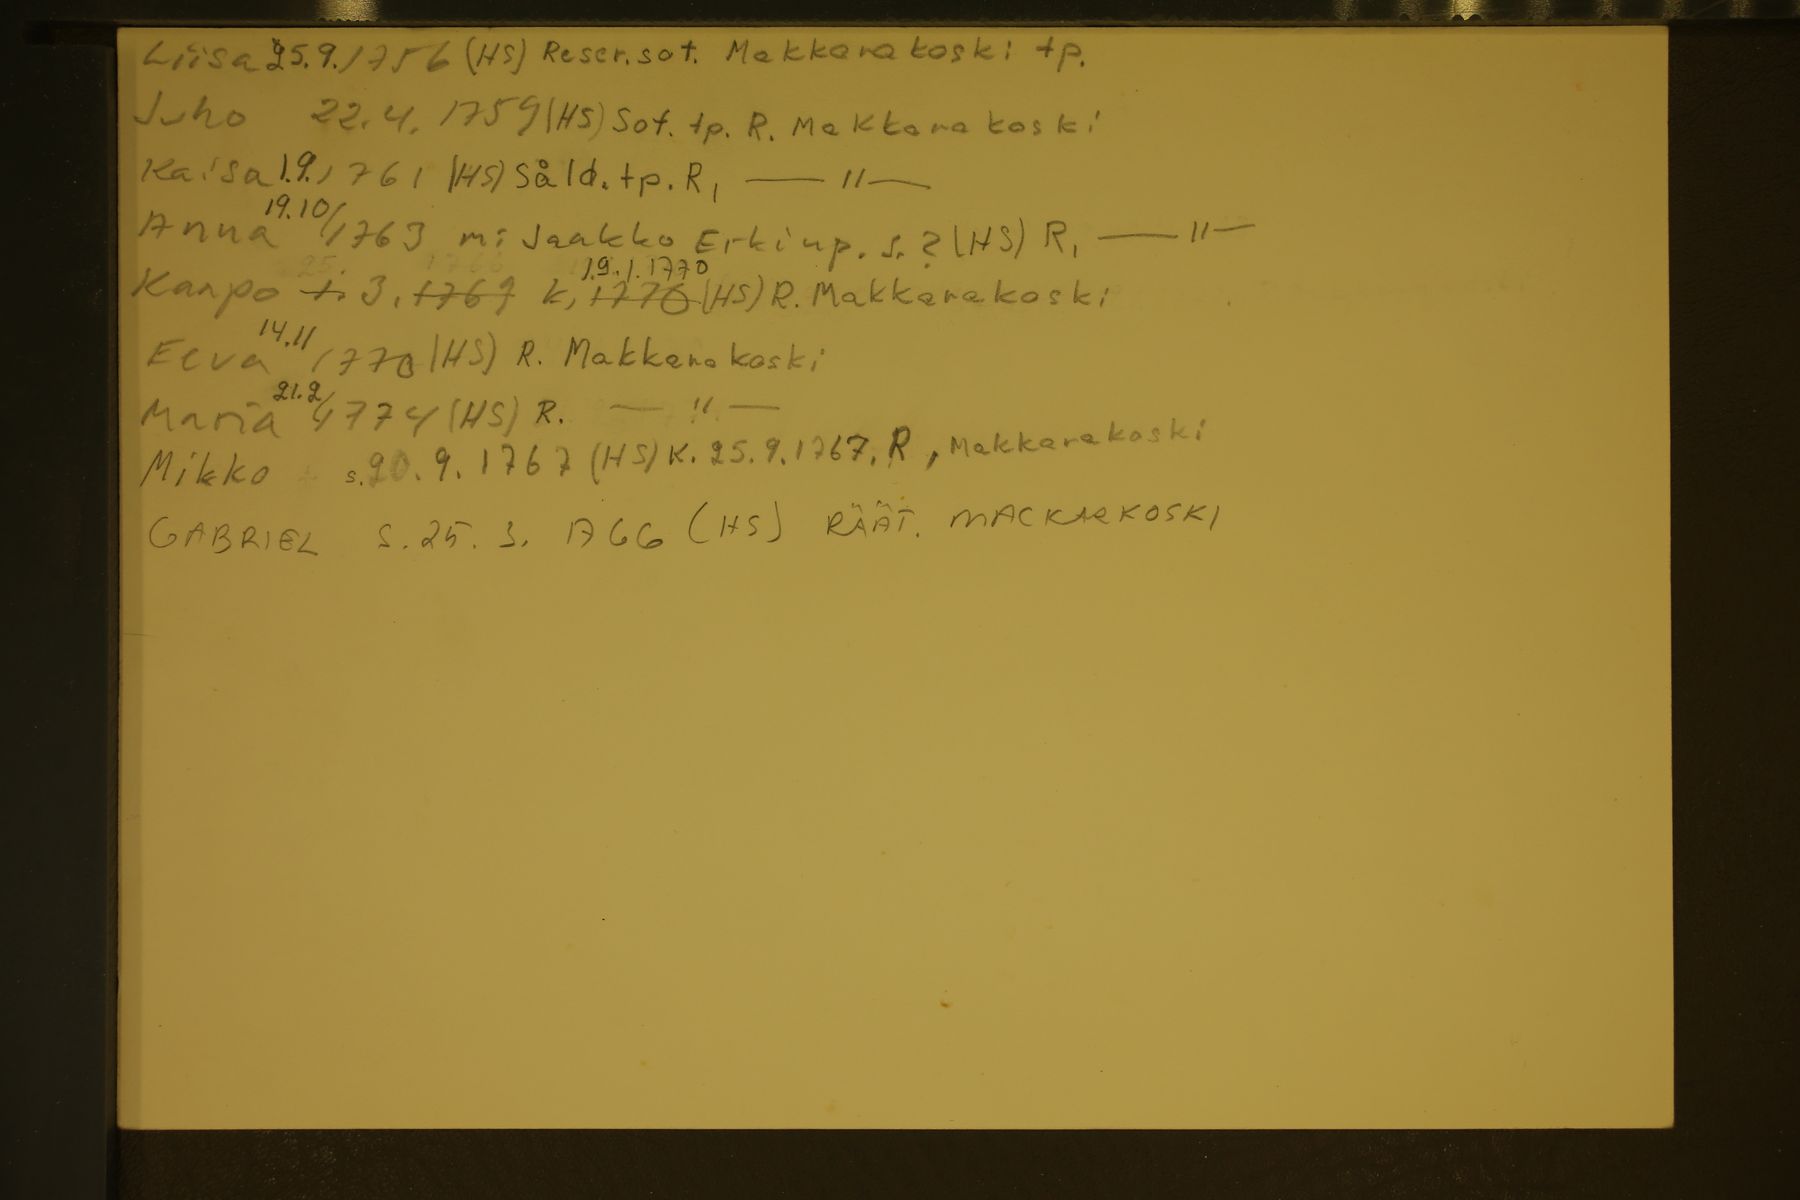 Liisa 25.9.1756 (HS) Reser.sot. Makkarakoski tp.
Juho 22.4.1759 (HS) Sot. tp. R. Makkarakoski
Kaisa 1.9.1761 (HS) Såld. tp. R, — " —
Anna 19.10/1763 mi Jaakko Erkinp. s.? (HS) R, — " —
Kaapo 1. 3. 1769 k, 1770 19.1.1770 (HS) R. Makkarakoski
Eeva 14.11 1770 (HS) R. Makkarakoski
Maria 21.2/1774 (HS) R. — " —
Mikko s.20.9.1767 (HS) K. 25.9.1767. R, Makkarakoski
GABRIEL S. 25. 3. 1766 (HS) RÄÄT. MACKARKOSKI